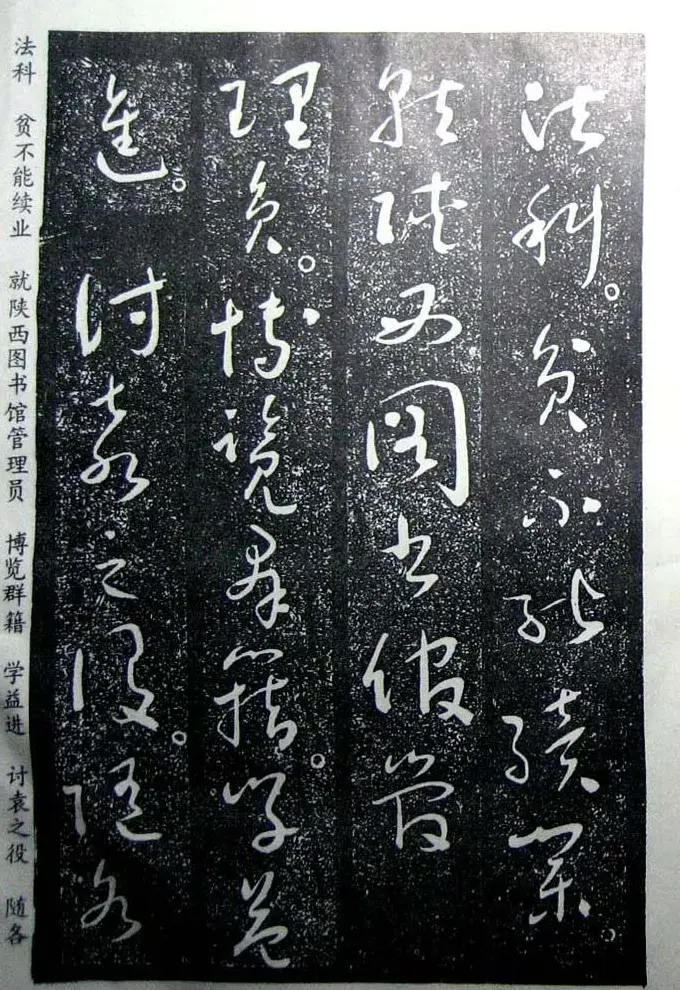 法科。贫不能续業。
就陕西图书馆管
理员。博览群籍。学益
进。讨袁之役。随各
法科 贫不能续业 就陕西图书馆管理员 博览群籍 学益进 讨袁之役 随各